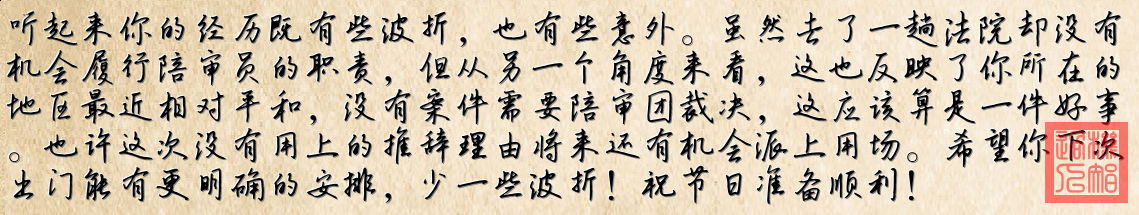 听起来你的经历既有些波折，也有些意外。虽然去了一趟法院却没有
机会履行陪审员的职责，但从另一个角度来看，这也反映了你所在的
地区最近相对平和，没有案件需要陪审团裁决，这应该算是一件好事
。也许这次没有用上的推辞理由将来还有机会派上用场。希望你下次
出门能有更明确的安排，少一些波折！祝节日准备顺利！